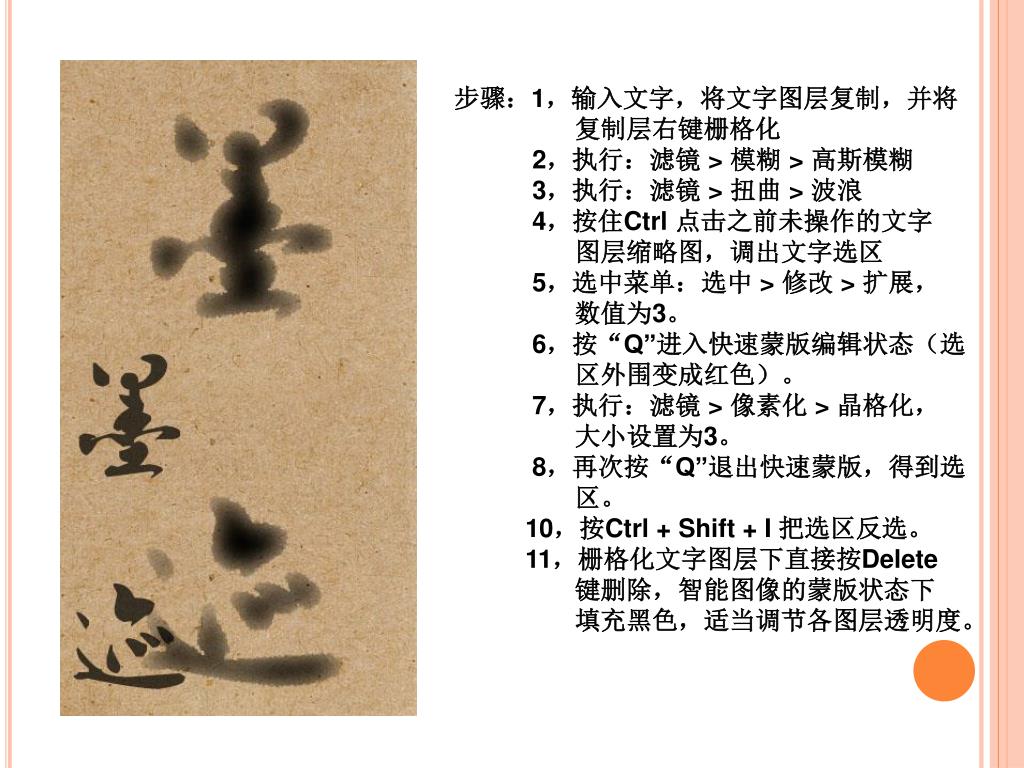 墨
墨
迹
迹
步骤：1，输入文字，将文字图层复制，并将
复制层右键栅格化
2，执行：滤镜 > 模糊 > 高斯模糊
3，执行：滤镜 > 扭曲 > 波浪
4，按住Ctrl 点击之前未操作的文字
图层缩略图，调出文字选区
5，选中菜单：选中 > 修改 > 扩展，
数值为3。
6，按“Q”进入快速蒙版编辑状态（选
区外围变成红色）。
7，执行：滤镜 > 像素化 > 晶格化，
大小设置为3。
8，再次按“Q”退出快速蒙版，得到选
区。
10，按Ctrl + Shift + I 把选区反选。
11，栅格化文字图层下直接按Delete
键删除，智能图像的蒙版状态下
填充黑色，适当调节各图层透明度。